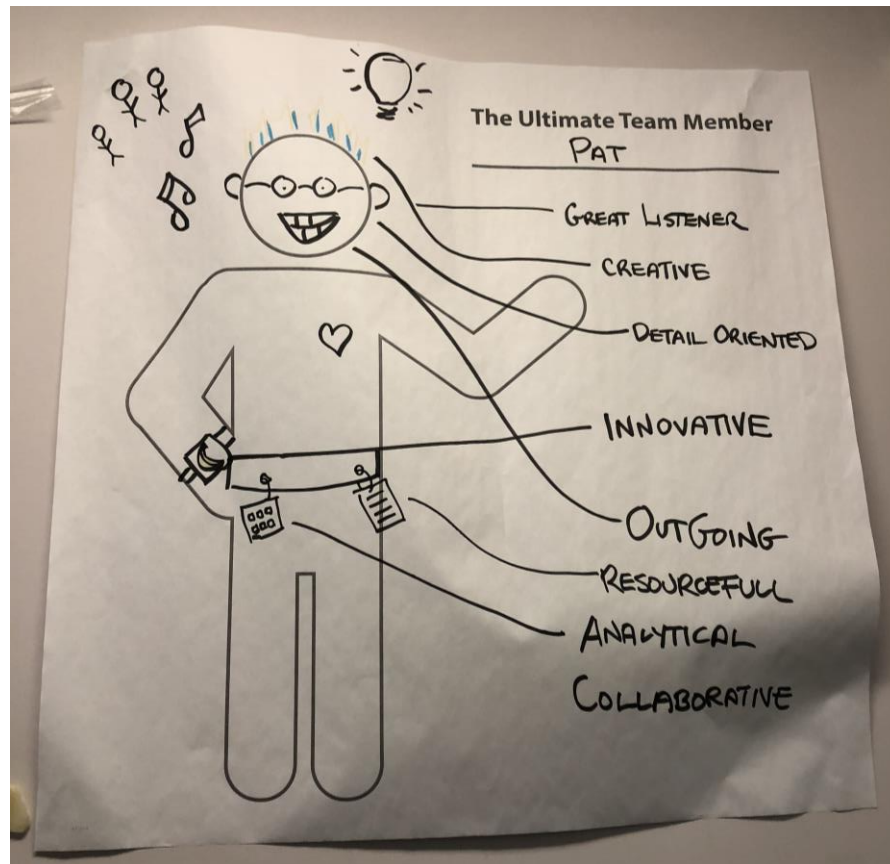 The Ultimate Team Member
PAT
GREAT LISTENER
CREATIVE
DETAIL ORIENTED
INNOVATIVE
OUTGOING
RESOURCEFULL
ANALYTICAL
COLLABORATIVE